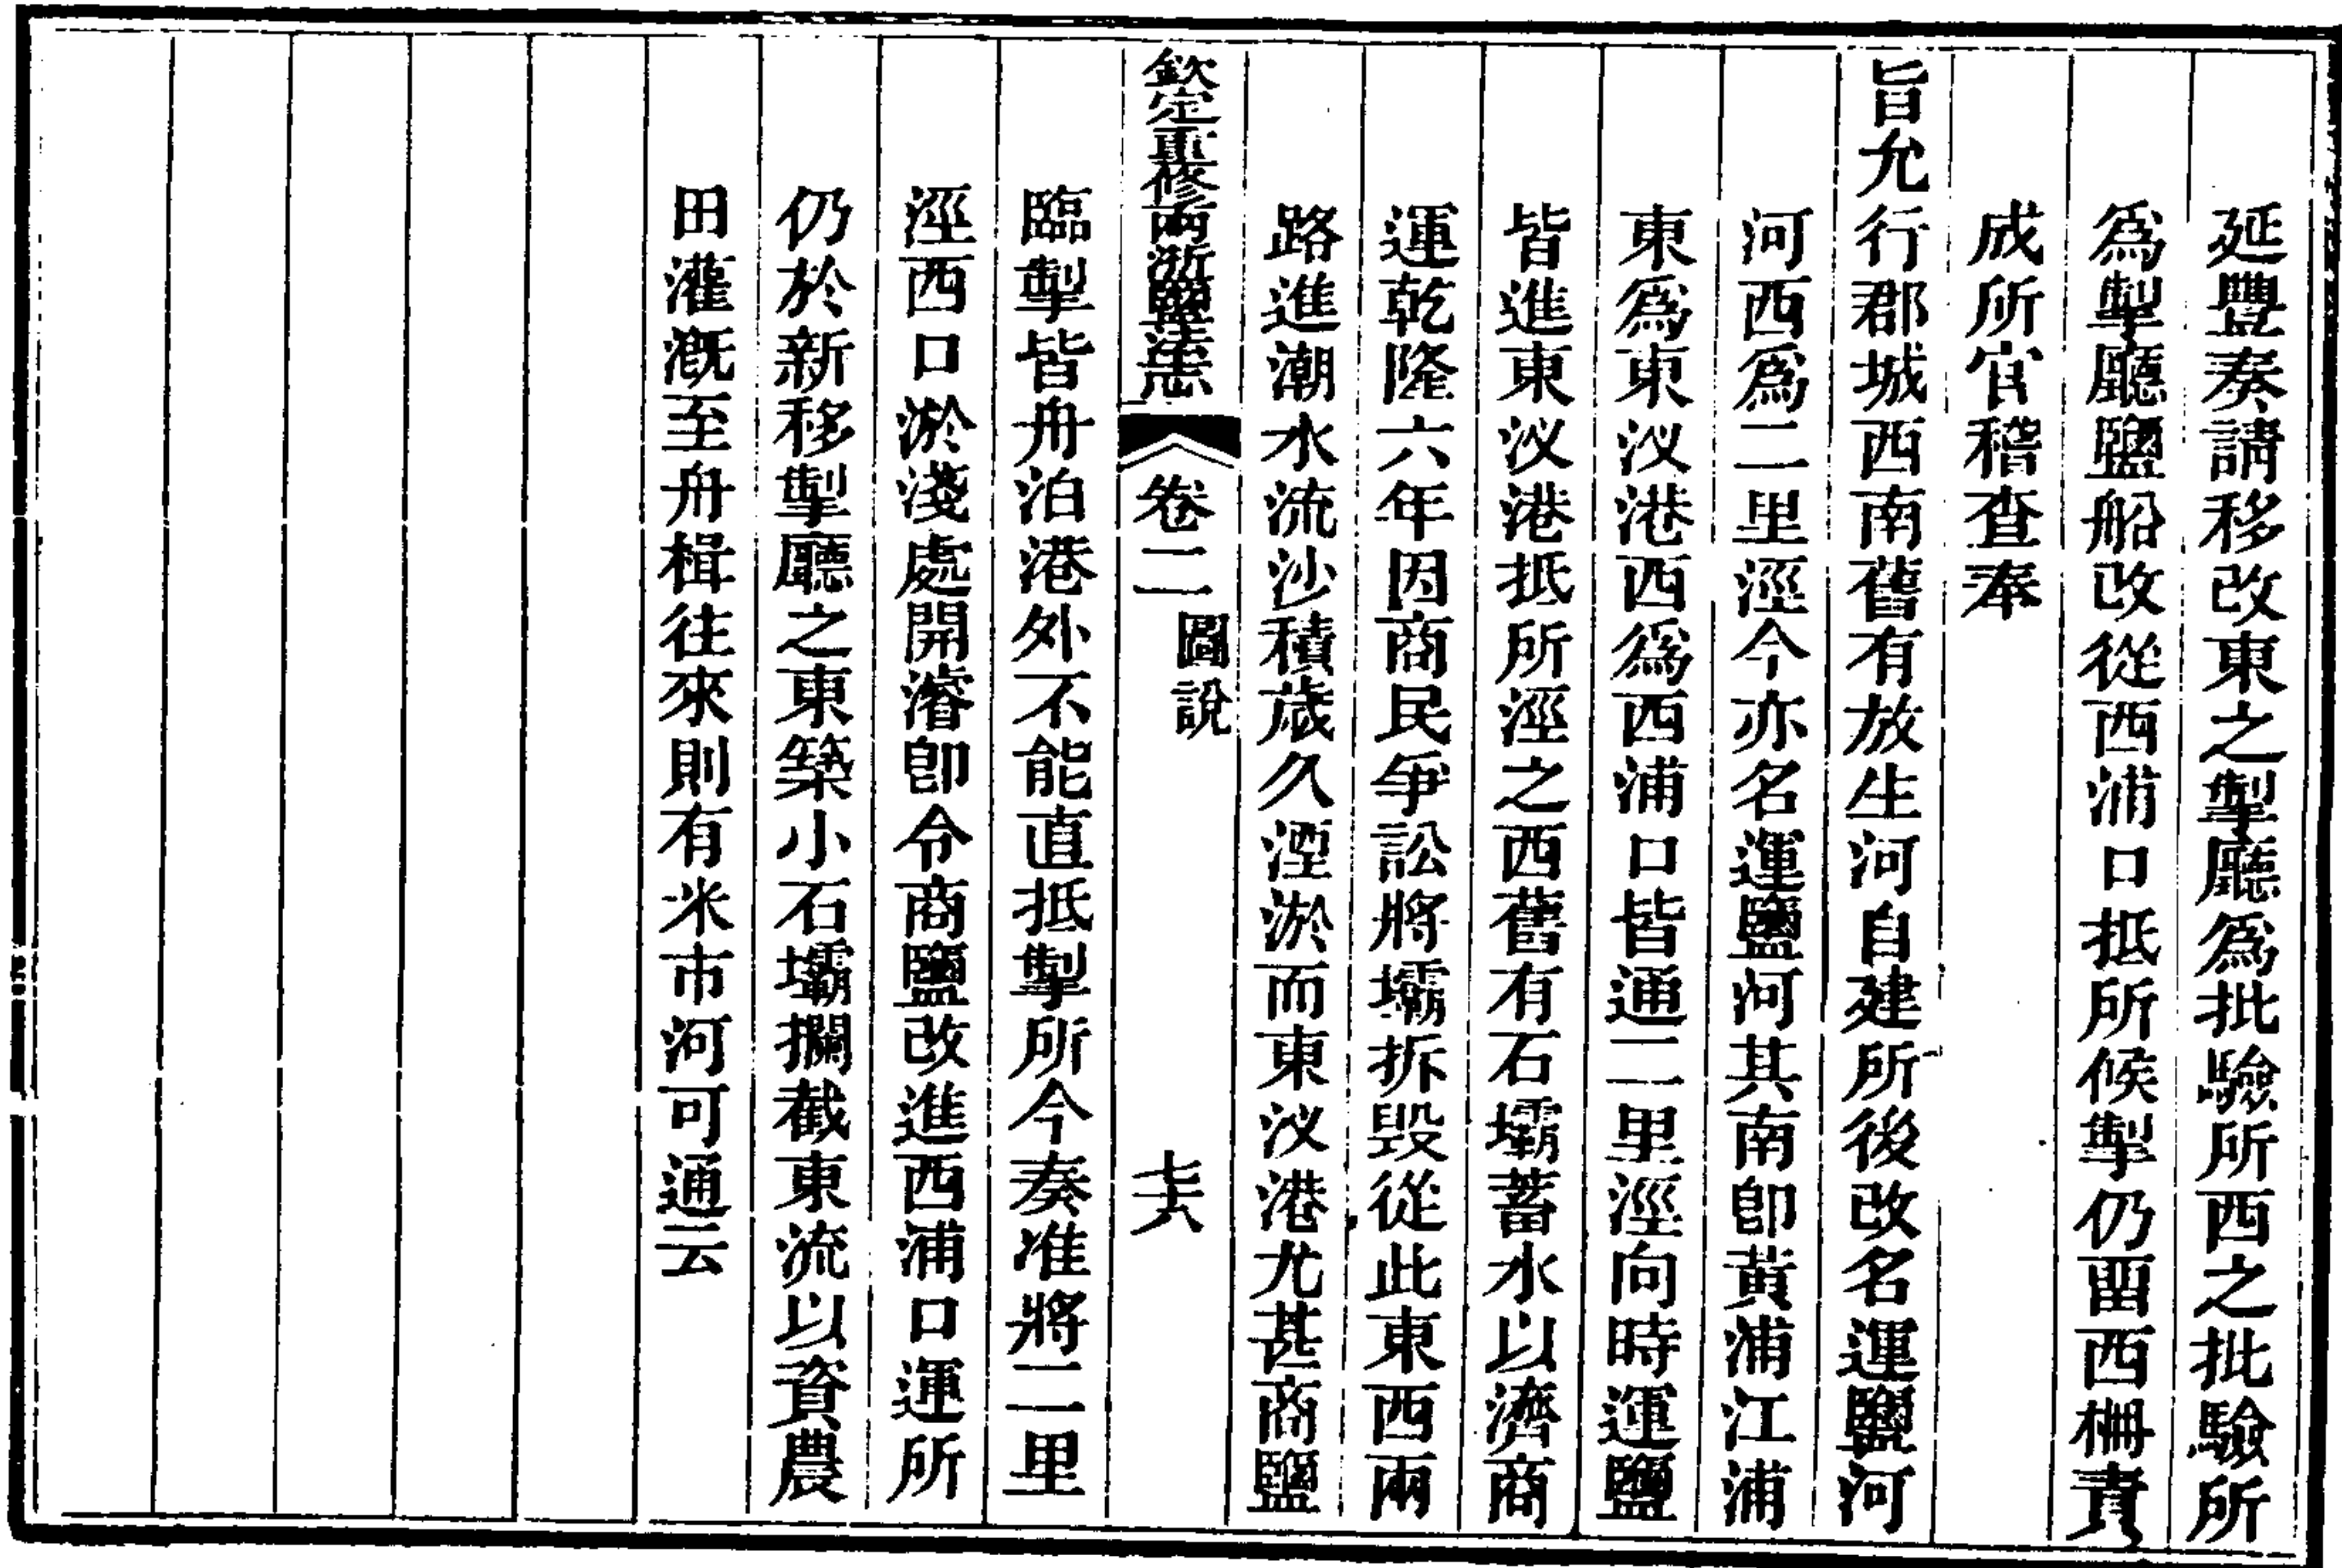 延豐奏請移改東之掣廳爲批驗所西之批驗所
爲掣廳鹽船改從西浦口抵所候掣仍畱西柵責
成所官稽查奉
旨允行郡城西南舊有放生河自建所後改名運鹽河
河西爲二里涇今亦名運鹽河其南卽黃浦江浦
東爲東汊港西爲西浦口皆通二里涇向時運鹽
皆進東汊港抵所涇之西舊有石壩蓄水以濟商
運乾隆六年因商民爭訟將壩拆毀從此東西兩
路進潮水流沙積歲久湮淤而東汊港尤甚商鹽
欽定重修兩浙鹽法志 卷二 圖說 七六
臨掣皆舟泊港外不能直抵掣所今奏准將二里
涇西口淤淺處開濬卽令商鹽改進西浦口運所
仍於新移掣廳之東築小石壩攔截東流以資農
田灌漑至舟楫往來則有米市河可通云